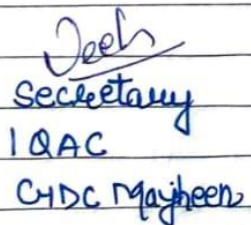 Secretary
IQAC
GDC Majheen